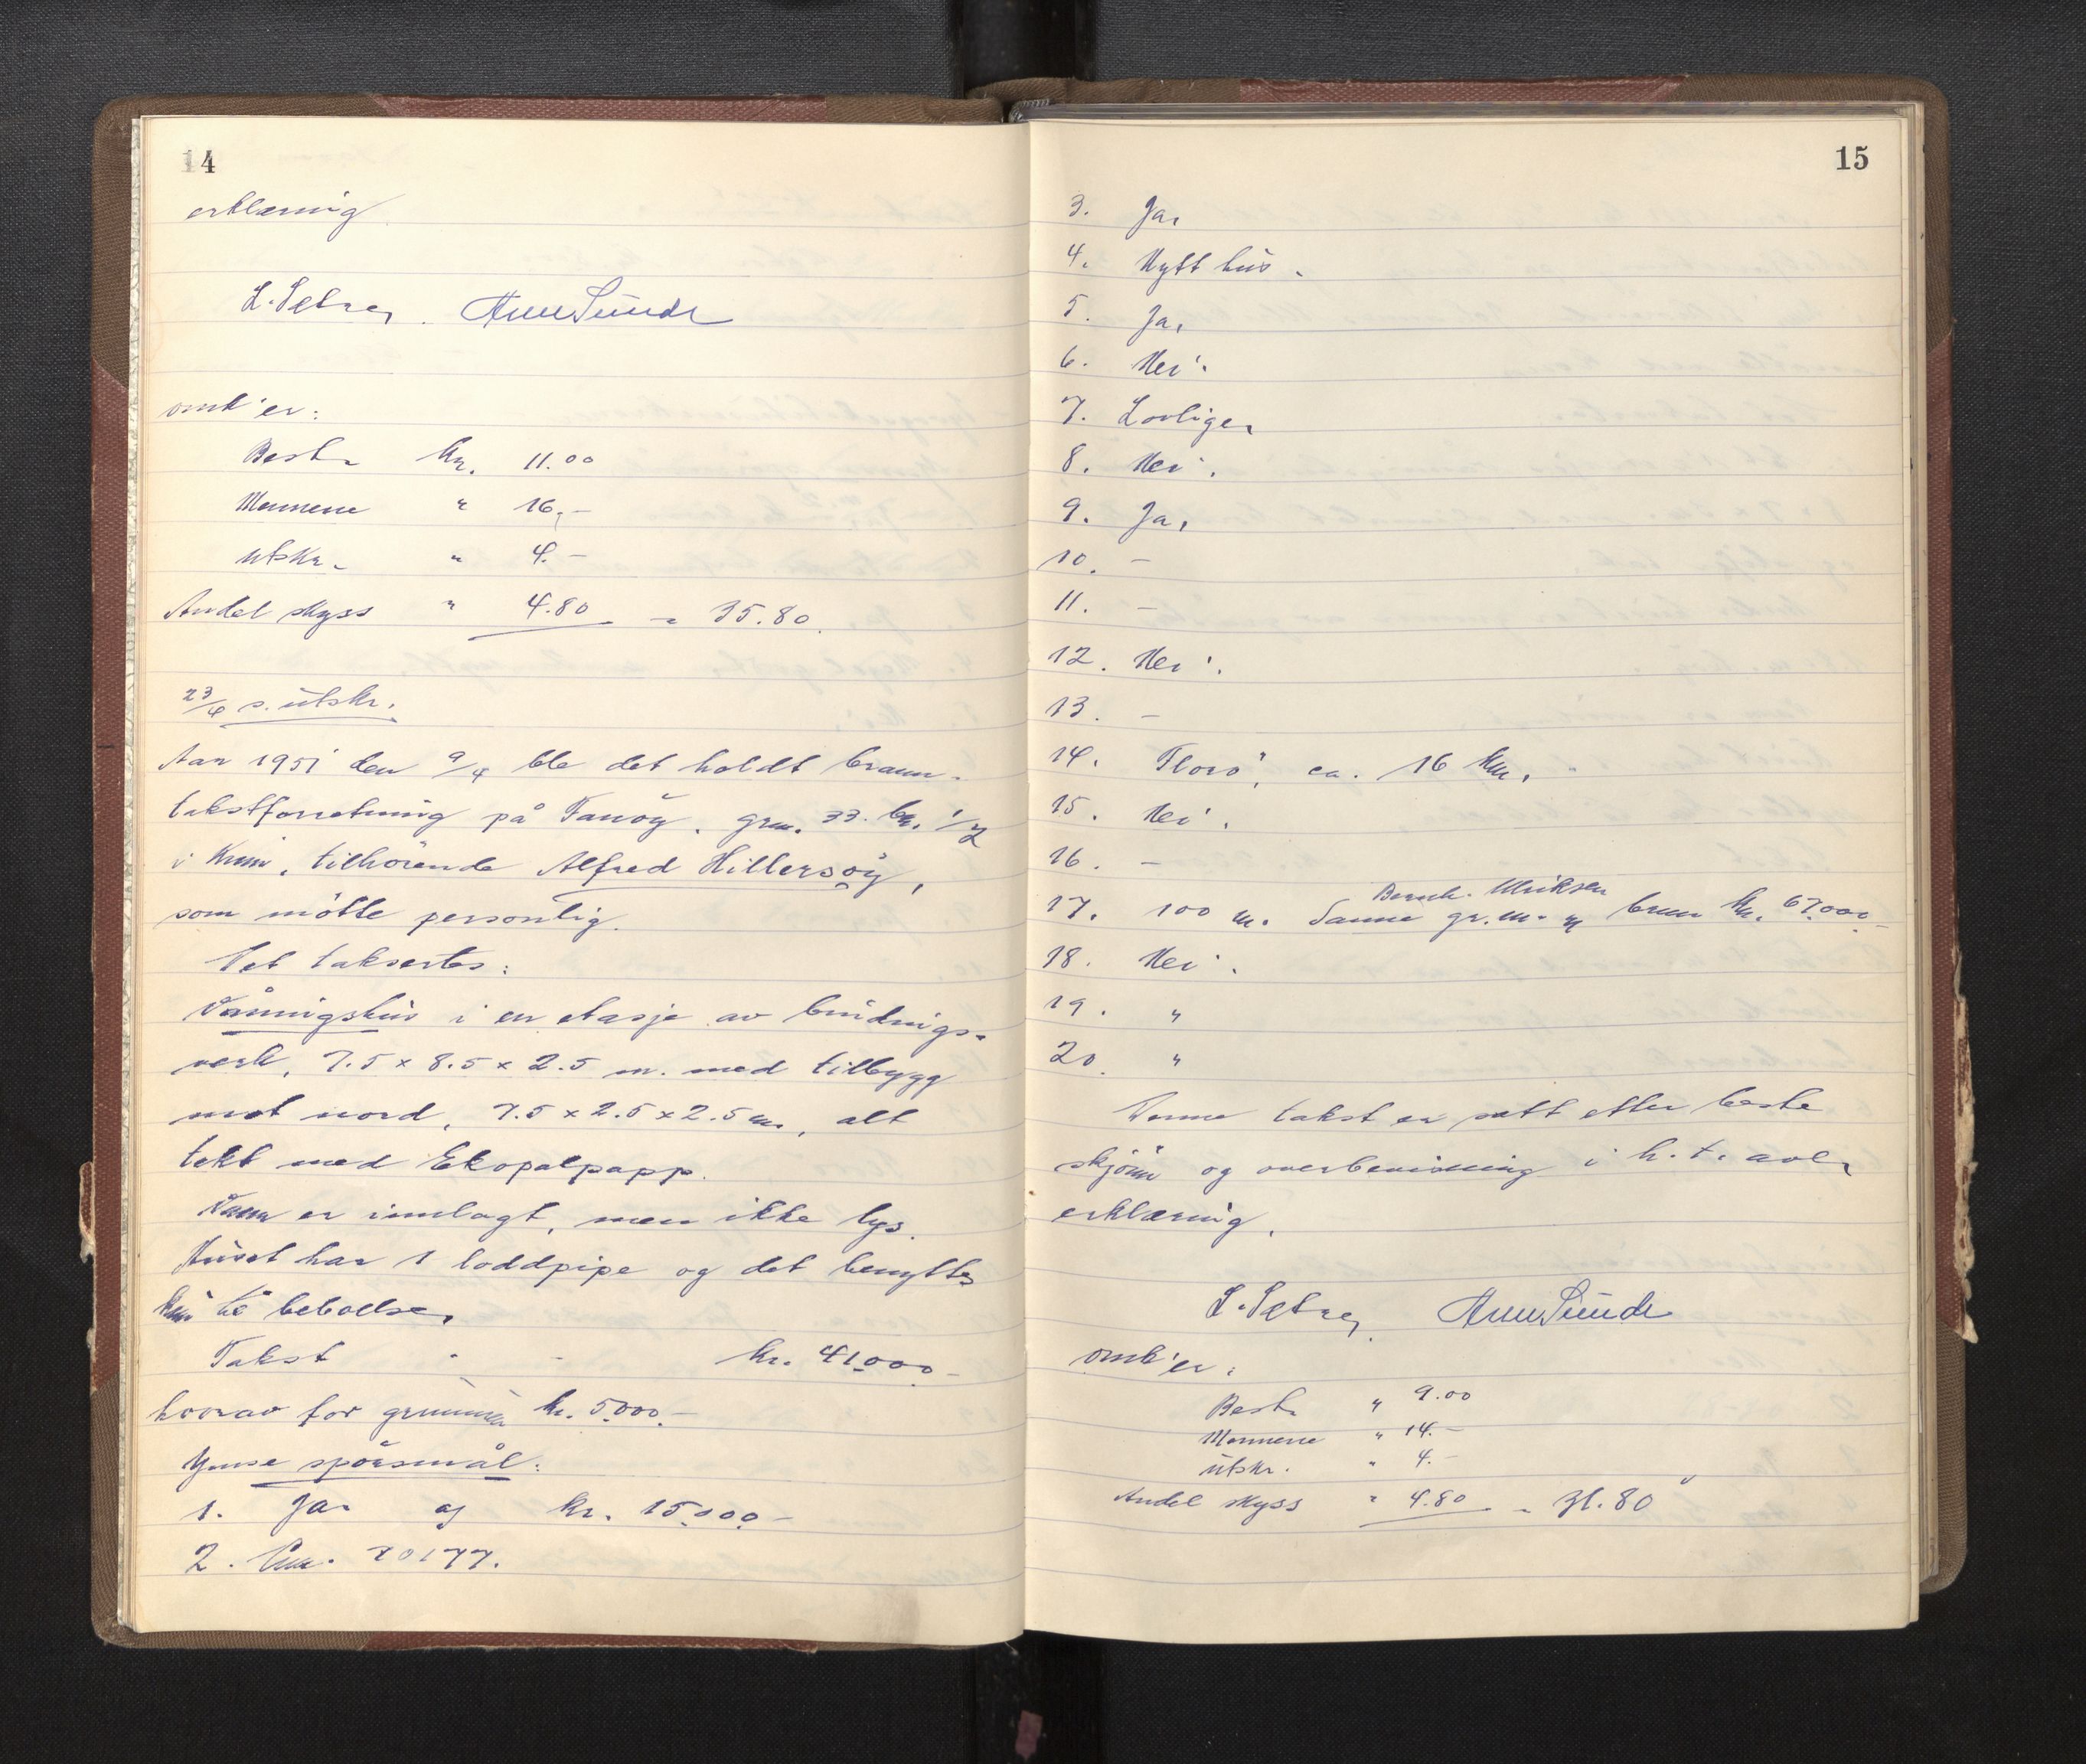 14
erklæring
L. Setre, Arne Sunde
omk'er:
Best. kr. 11.00
Mennene " 16,-
utskr. " 4.-
Andel skyss " 4.80 = 35.80
23/4 s. utskr.
Aar 1951 den 9/4 ble det holdt brann-
takstforretning på Fanöy, grn. 33. br. 1/2
i Kinn, tilhörende Alfred Hillersöy,
som mötte personlig.
Det taksertes:
Våningshus i en etasje av bindnigs-
verk, 7.5 x 8.5 x 2.5 m. med tilbygg
mot nord, 7.5 x 2.5 x 2.5 m, alt
tekt med Ekopalpapp.
Vann er innlagt, men ikke lys.
Huset har 1 loddpipe og det benyttes
kun til beboelse.
Takst - - kr. 41.000.-
hvorav for grunnmur kr. 5000.-
Ymse spörsmål:
1. Ja. og kr. 15.000.-
2. 20177.
15
3. Ja.
4. Nytt hus.
5. Ja.
6. Nei.
7. Lovlige.
8. Nei.
9. Ja.
10. -
11. -
12. Nei.
13. -
14. Florö, ca. 16 km.
15. Nei.
16. -
Bernh. Ulriksen
17. 100 m. Samme gr.nr. og brnr kr. 67.000.-
18. Nei.
19. "
20. "
Denne takst er satt etter beste
skjönn og overbevisning i h.t. avl.
erklæring.
L. Setre, Arne Sunde
omk'er:
Best. " 9.00
Mennene " 14.-
utskr. " 4.-
Andel skyss " 4.80 = 31.80